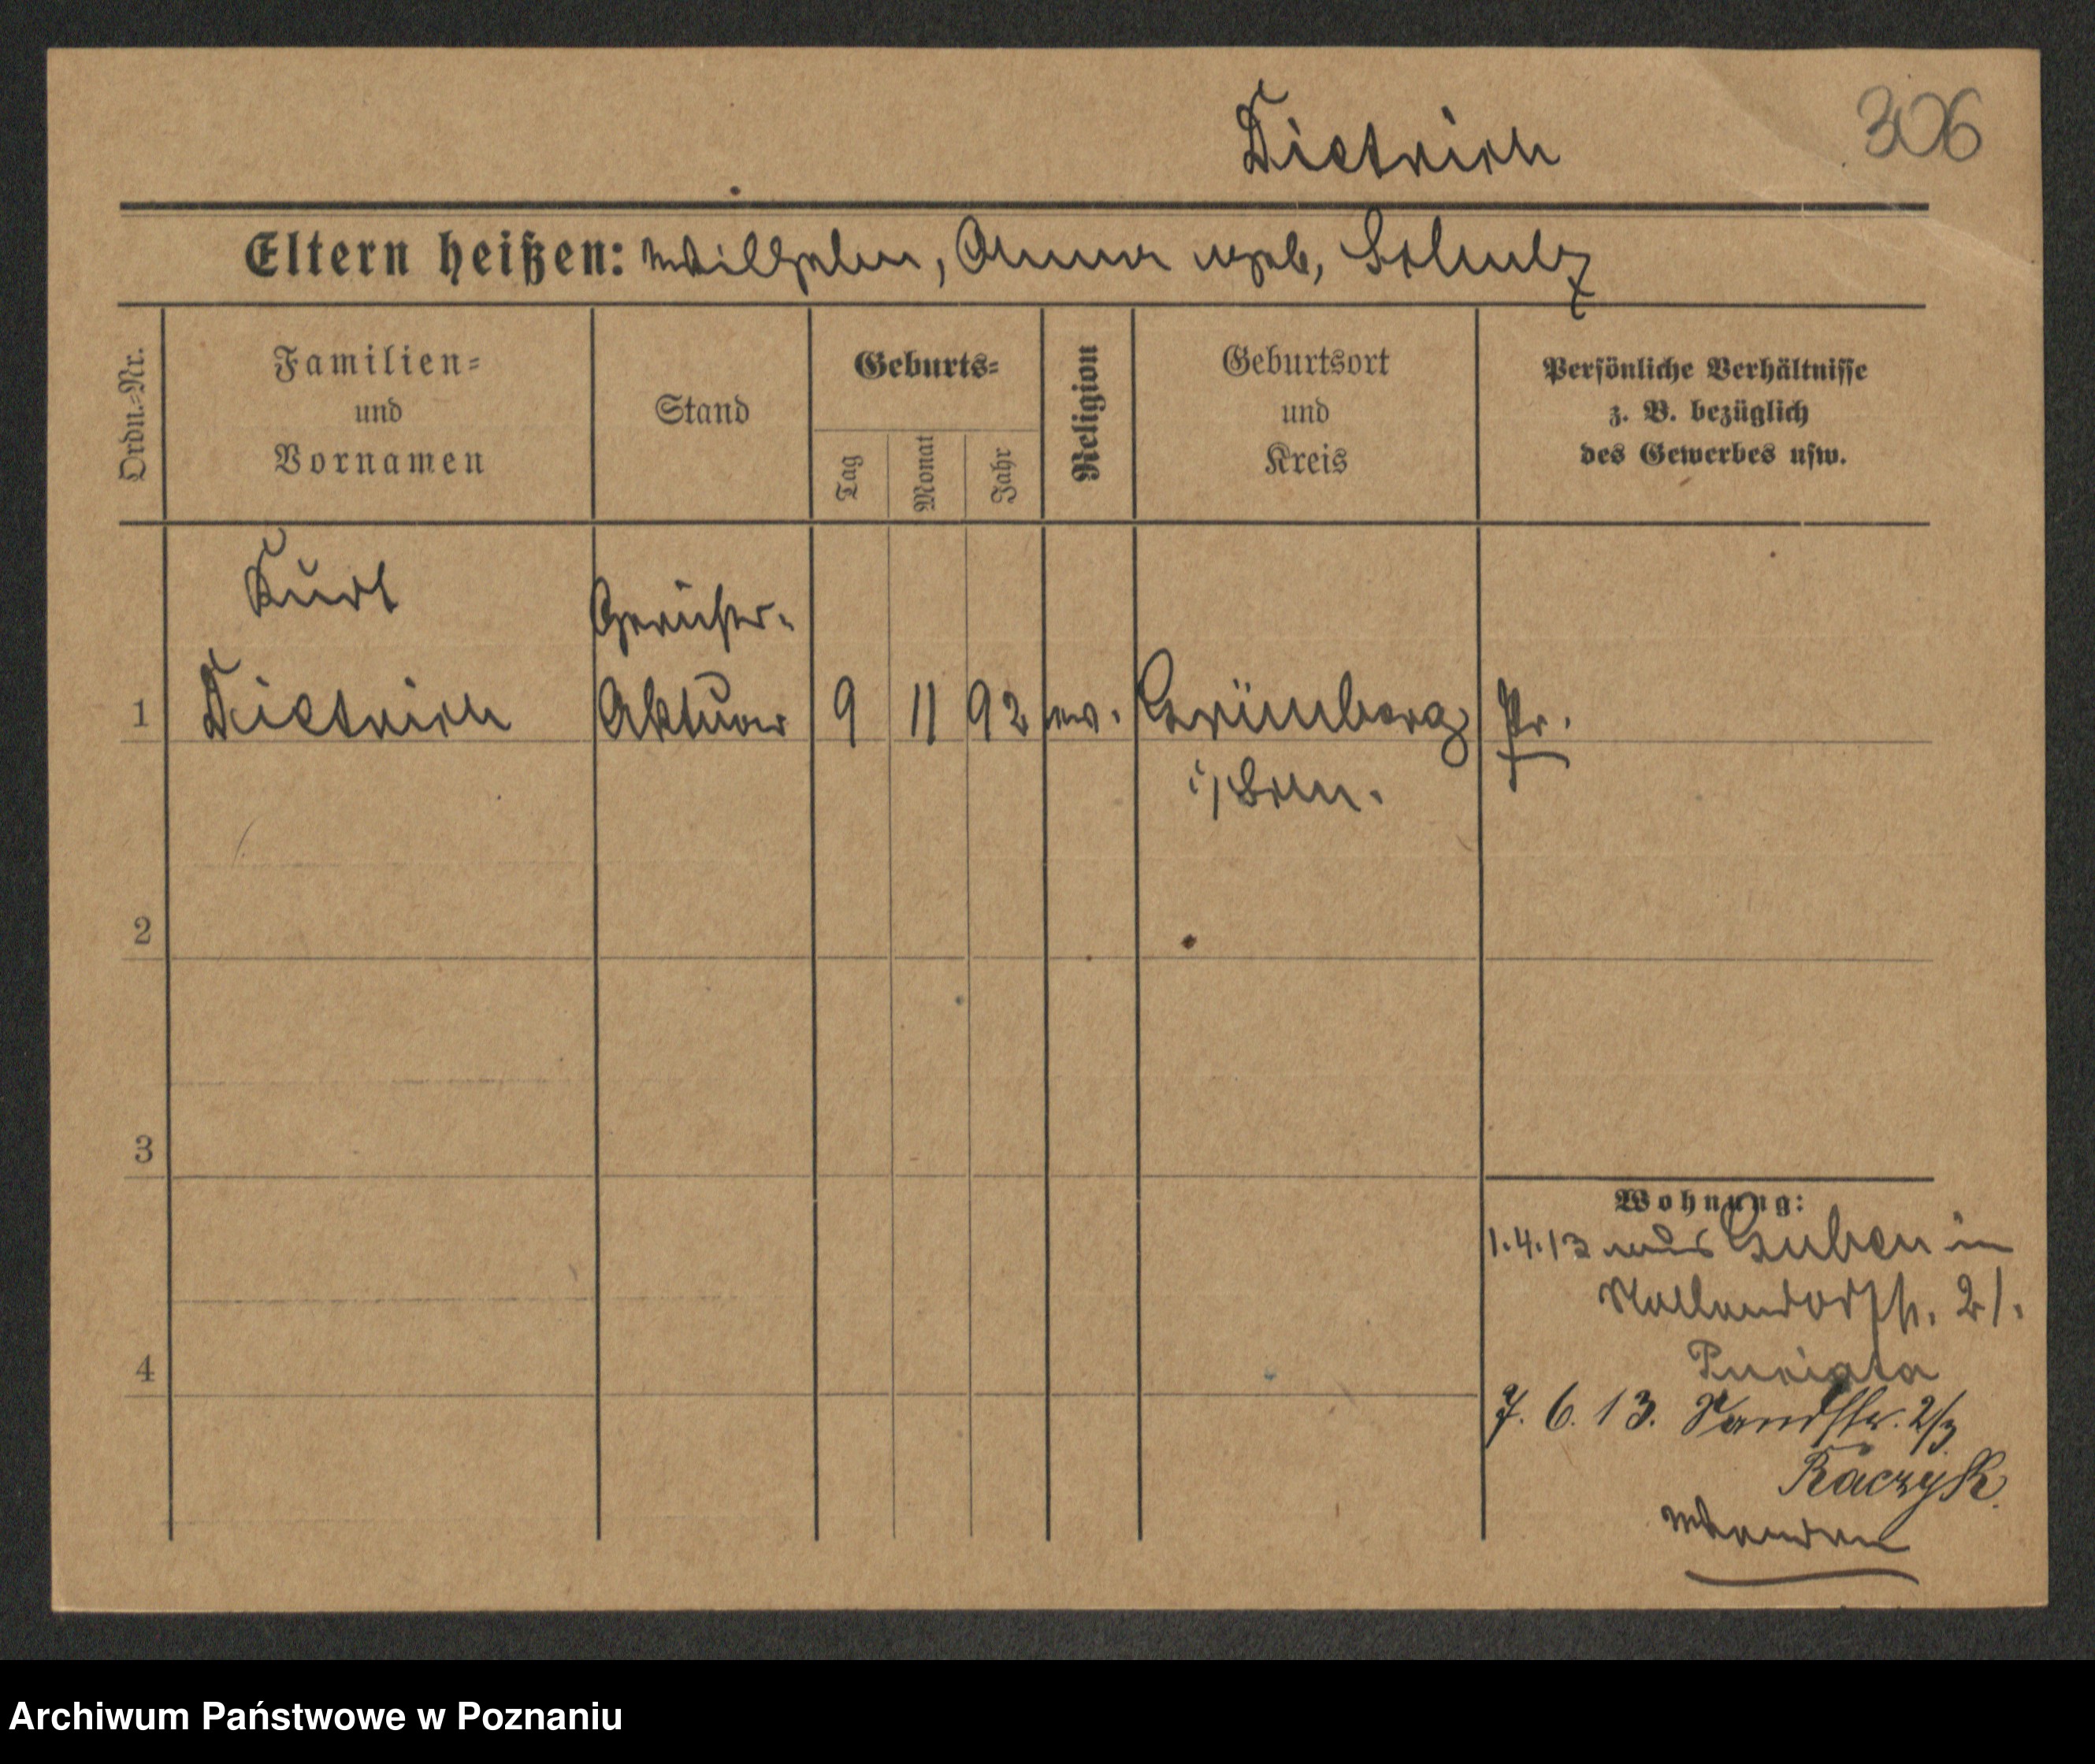 Dietrich
306
Eltern heißen: Wilhelm, Anna geb. Schulz
Ordn.=Nr.
Familien=
und
Vornamen
Stand
Geburts=
Tag
Monat
Jahr
Religion
Geburtsort
und
Kreis
Persönliche Verhältnisse
z. B. bezüglich
des Gewerbes usw.
Kurt
Gerichts-
1
Dietrich
Aktuar
9
11
92
ev.
Grünberg
Pr.
i/Schl.
2
3
4
Wohnung:
1.4.13 aus Guben in
21.
7. 6. 13. Sandstr. 2/3
Raczyk.